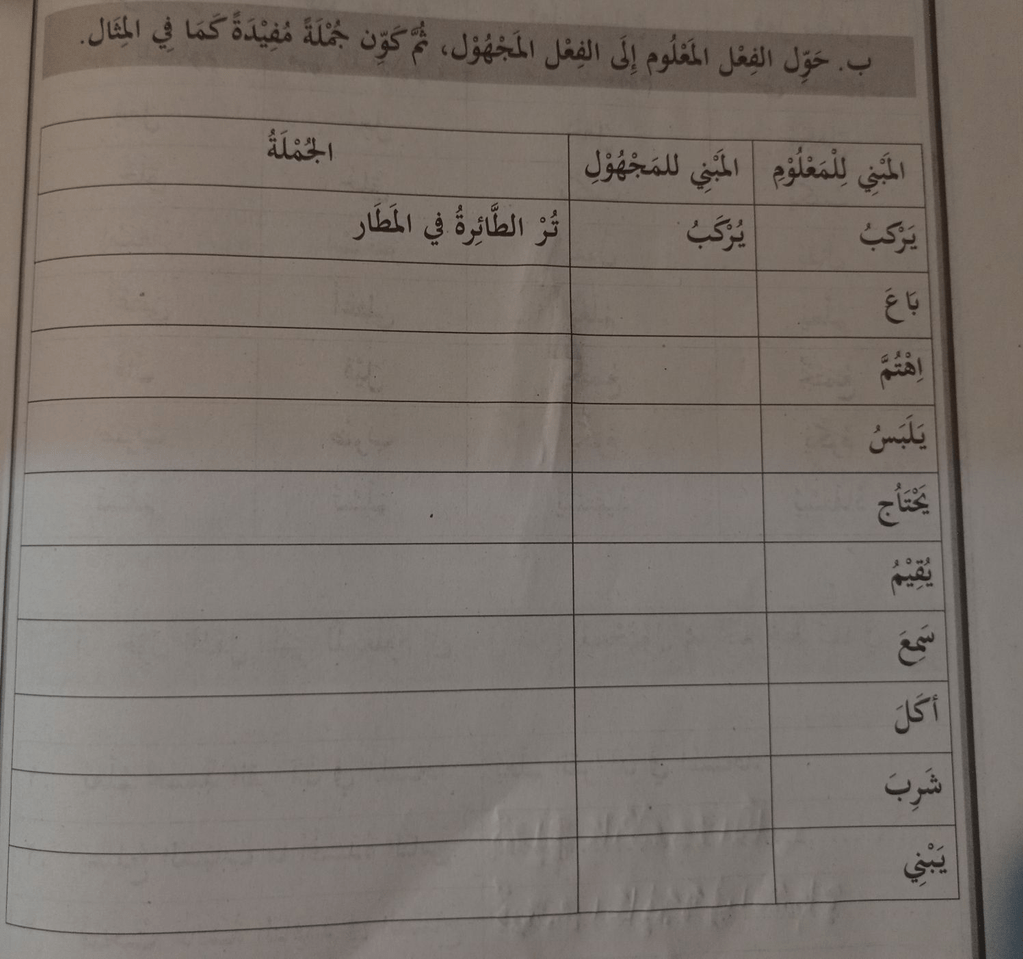 ب. حَوِّل الفِعْل المَعْلُوم إِلَى الفِعْل المَجْهُوْل، ثُمَّ كَوِّن جُمْلَةً مُفِيْدَةً كَمَا فِي المِثَال.
المَبْنِي لِلْمَعْلُوْمِ المَبْنِي للمَجْهُوْلِ الجُمْلَةُ
يَرْكبُ يُرْكَبُ تُرْ الطَّائِرةُ فِي المَطَار
بَاعَ
اِهْتُمَّ
يَلَبَسُ
يَحْتَاُج
يُقِيْمُ
سَمِعَ
أكَلَ
شَرِبَ
يَبْنِي